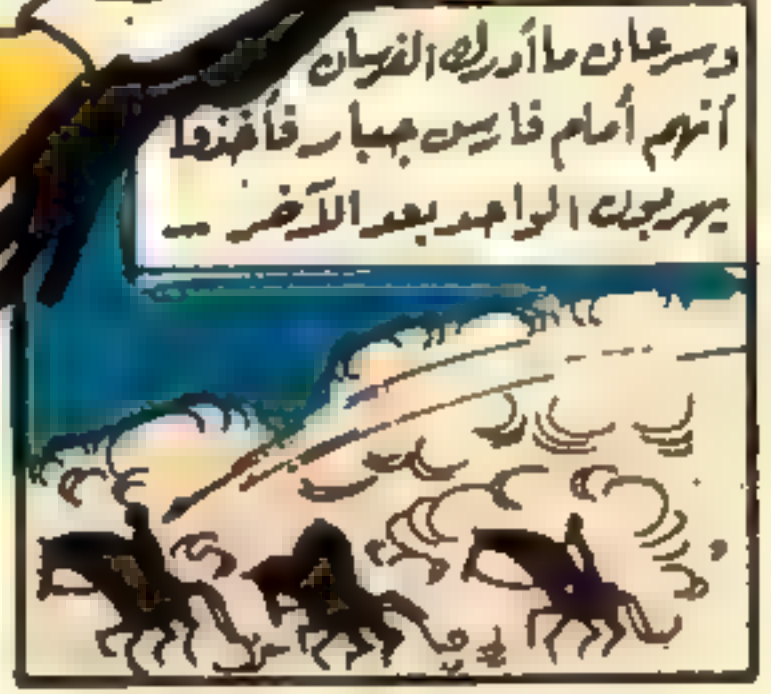 وسرعان ما أدرك الفرسان
أنهم أمام فارس جبار فأخذوا
يهربون الواحد بعد الآخر ...